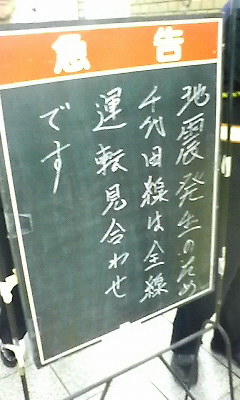 急告
地震発生のため
千代田線は全線
運転見合わせ
です